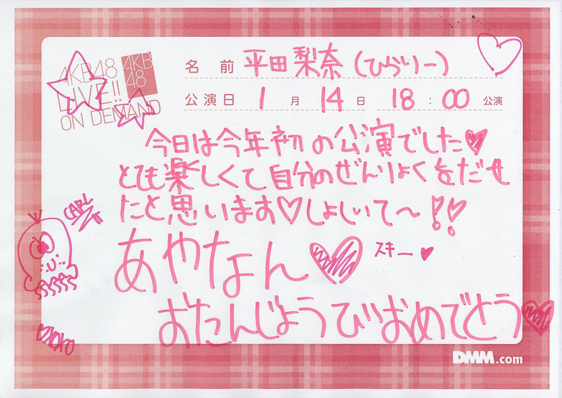 AKB48
LIVE!!
ON DEMAND
AKB
48
名前 平田梨奈(ひらりー)
公演日 1月14日 18:00公演
今日は今年初の公演でした♥
とても楽しくて自分のぜんりょくをだせ
たと思います♡しょじいて〜!!
あやなん♥ スキー♥
おたんじょうびおめでとう♥
CARL
DMM.com